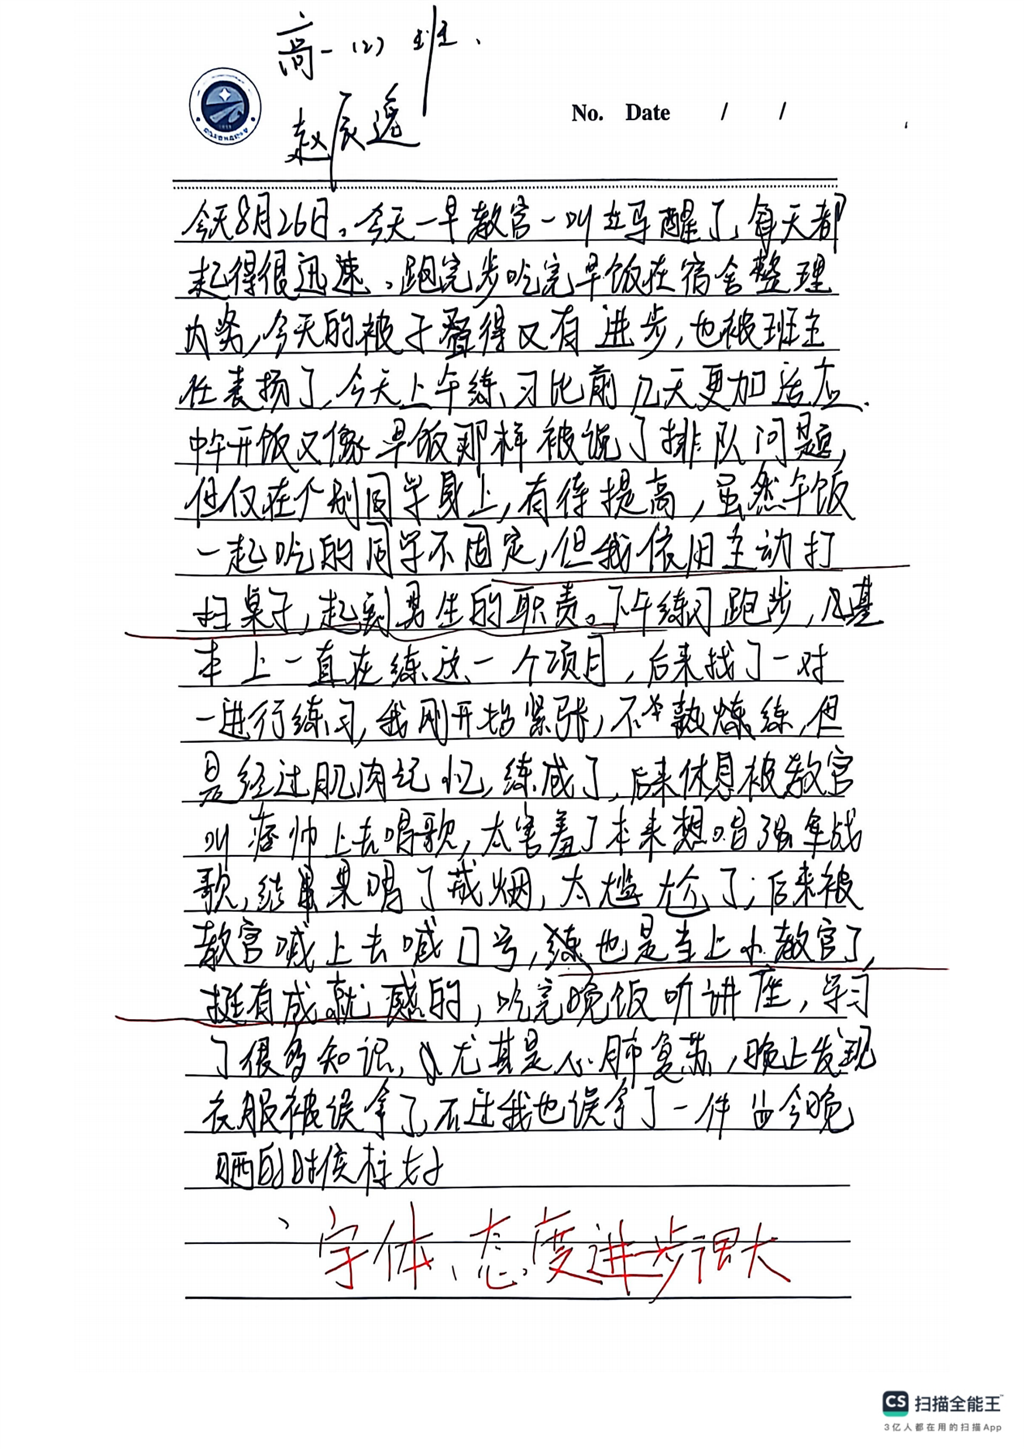 高一(2)班.
赵辰逸
No. Date / /
今天8月26日。今天一早教官一叫立马醒了,每天都
起得很迅速。跑完步吃完早饭在宿舍整理
内务,今天的被子叠得又有进步,也被班主
任表扬了,今天上午练习比前几天更加适应.
中午开饭又像早饭那样被说了排队问题,
但仅在个别同学身上,有待提高,虽然午饭
一起吃的同学不固定,但我依旧主动打
扫桌子,起到男生的职责。下午练习跑步,基
本上一直在练这一个项目,后来找了一对
一进行练习,我刚开始紧张,不太熟练,但
是经过肌肉记忆,练成了,后来休息被教官
叫 帅上去唱歌,太害羞了本来想唱强军战
歌,结果唱了戒烟,太尴尬了;后来被
教官喊上去喊口号,也是当上小教官了,
挺有成就感的,吃完晚饭听讲座,学习
了很多知识,尤其是心肺复苏,晚上发现
衣服被误拿了,不过我也误拿了一件 今晚
晒的时候
字体、态度进步很大
CS 扫描全能王
3亿人都在用的扫描App